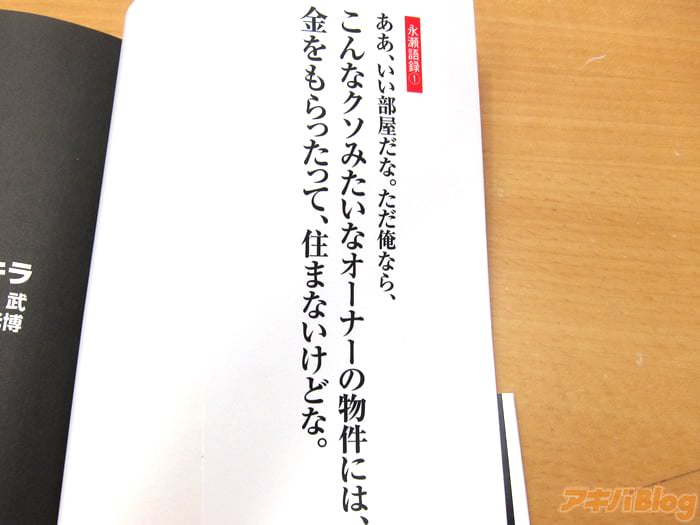 永瀬語録①
ああ、いい部屋だな。ただ俺なら、
こんなクソみたいなオーナーの物件には、
金をもらったって、住まないけどな。
ラ
武
博
アキバBlog